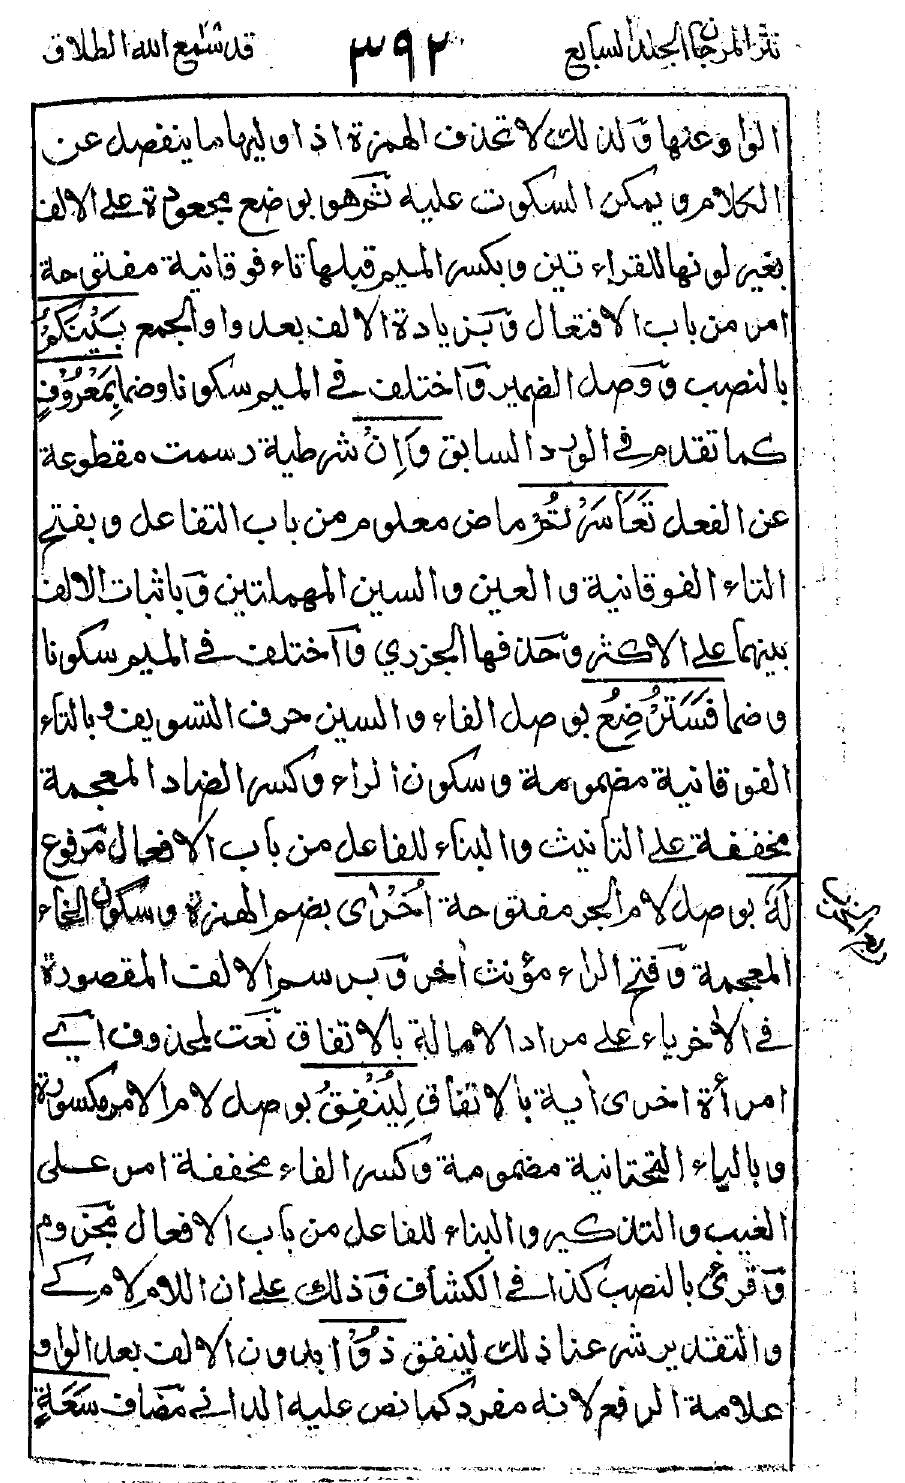 نثر المرجان الجلد السابع
٣٩٢
قد سمع الله الطلاق
الواو عنها ولذلك لا تحذف الهمزة اذا وليها ما ينفصل عن
الكلام ويمكن السكوت عليه ثم هو بوضع مجعودة على الالف
بغير لونها للقراءتين وبكسر الميم قبلها تاء فوقانية مفتوحة
امر من باب الافتعال وبزيادة الالف بعد واو الجمع بَيْنَكُمْ
بالنصب ووصل الضمير واختلف في الميم سكونا وضما بِمَعْرُوْفٍ
كما تقدم في الورد السابق وَاِنْ شرطية رسمت مقطوعة
عن الفعل تَعَاسَرْتُمْ ماض معلوم من باب التفاعل وبفتح
التاء الفوقانية والعين والسين المهملتين وباثبات الالف
بينهما على الاكثر وحذفها الجزري واختلف في الميم سكونا
وضما فَسَتُرْضِعُ بوصل الفاء والسين حرف التسويف وبالتاء
الفوقانية مضمومة وسكون الراء وكسر الضاد المعجمة
مخففة على التانيث والبناء للفاعل من باب الافعال مرفوع
لَهٗ بوصل لام الجر مفتوحة اُخْرٰى بضم الهمزة وسكون الخاء
المعجمة وفتح الراء مؤنث اٰخر وبرسم الالف المقصورة
في الاٰخر ياء على مراد الامالة بالاتفاق نعت لمحذوف اي
امرأة اخرى اٰية بالاتفاق لِيُنْفِقْ بوصل لام الامر مكسورة
وبالياء التحتانية مضمومة وكسر الفاء مخففة امر على
الغيب والتذكير والبناء للفاعل من باب الافعال مجزوم
وقرئ بالنصب كذا في الكشاف وذلك على ان اللام لام كي
والتقدير شرعنا ذلك لينفق ذُوْ ابدون الالف بعد الواو
علامة الرفع لانه مفرد كما نص عليه الداني مضاف سَعَةٍ